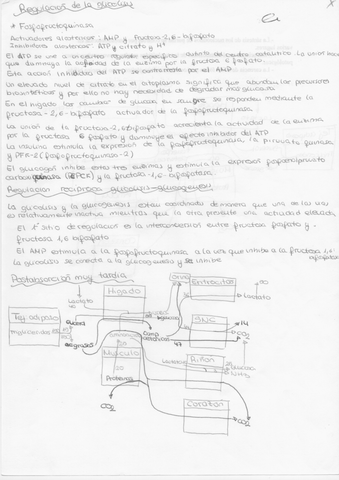 Regulación de la glucólisis
* Fosfofructoquinasa
Activadores alostéricos: AMP y fructosa 2,6-bifosfato
Inhibidores alostéricos: ATP y citrato y H+
El ATP se une a un centro regulador específico distinto del centro catalítico. La unión hace
que disminuya la afinidad de la enzima por la fructosa 6 fosfato.
Esta acción inhibidora del ATP se contrarresta por el AMP
Un elevado nivel de citrato en el citoplasma significa que abundan los precursores
biosintéticos y por ello no hay necesidad de degradar más glucosa
En el hígado los cambios de glucosa en sangre se responden mediante la
fructosa-2,6-bifosfato activador de la fosfofructoquinasa.
La unión de la fructosa-2,6bifosfato acrecienta la actividad de la enzima
por la fructosa 6 fosfato y disminuye el efecto inhibidor del ATP
La insulina estimula la expresión de la fosfofructoquinasa, la piruvato quinasa
y PFK-2 (fosfofructoquinasa-2)
El glucagón inhibe estas tres enzimas y estimula la expresión fosfoenolpiruvato
carboxiquinasa (PEPCK) y la fructosa-1,6-bifosfatasa.
Regulación recíproca glucólisis-gluconeogénesis
La glucólisis y la gluconeogénesis están coordinadas de manera que una de las vías
es relativamente inactiva mientras que la otra presenta una actividad elevada
El 1er sitio de regulación es la interconversión entre fructosa fosfato y
fructosa 1,6 bifosfato
El AMP estimula a la fosfofructoquinasa a la vez que inhibe a la fructosa 1,6-bifosfatasa
la glucólisis se conecta a la gluconeogénesis y se inhibe
Postabsorción muy tardía
Hígado
Eritrocitos
Lactato
Lactato
Tej adiposo
Triglicéridos
Glicerol
SNC
CO2
Músculo
Proteína
Riñón
NH3
Corazón
CO2
CO2